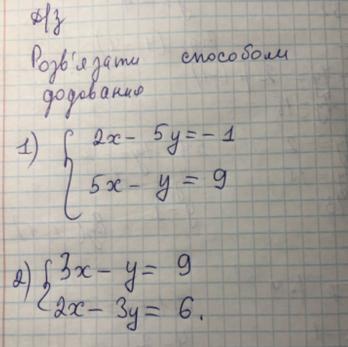 Д/з
Розв'язати способом
додавання
1) { 2x - 5y = -1
5x - y = 9
2) { 3x - y = 9
2x - 3y = 6.